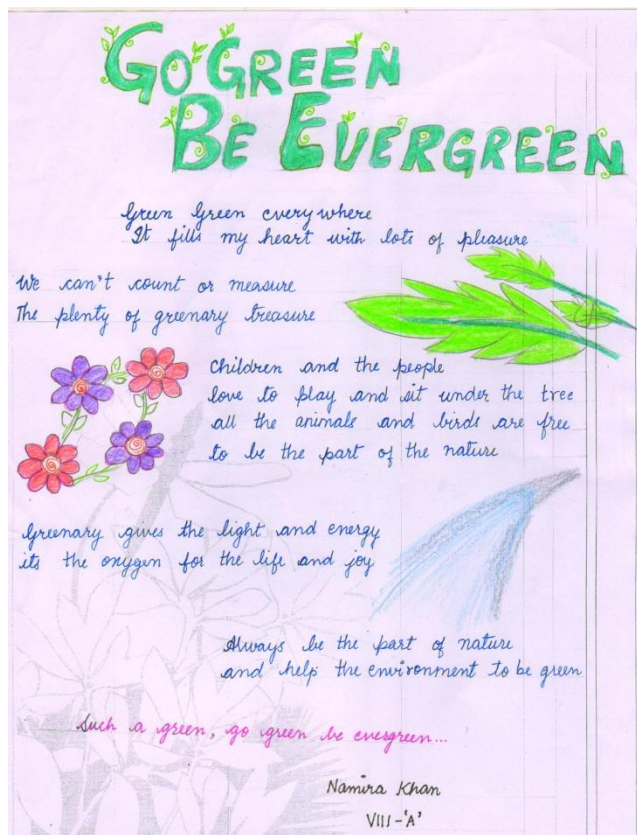 GO GREEN
BE EVERGREEN
Green Green everywhere
It fills my heart with lots of pleasure
We can't count or measure
The plenty of greenary treasure
Children and the people
love to play and sit under the tree
all the animals and birds are free
to be the part of the nature
Greenary gives the light and energy
its the oxygen for the life and joy
Always be the part of nature
and help the environment to be green
Such a green, go green be evergreen...
Namira Khan
VIII-'A'